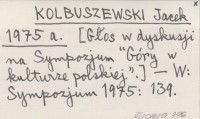 KOLBUSZEWSKI Jacek
1975 a. [Głos w dyskusji
na Sympozjum "Góry w
kulturze polskiej".] — W:
Sympozjum 1975: 139.